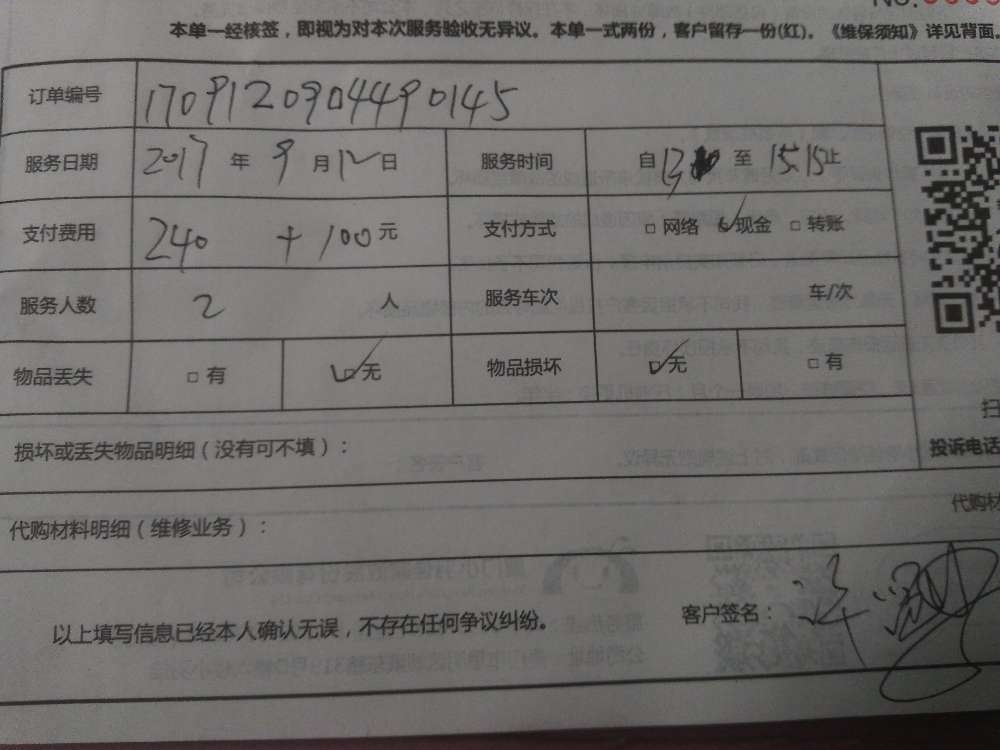 No.
本单一经核签，即视为对本次服务验收无异议。本单一式两份，客户留存一份(红)。《维保须知》详见背面。
订单编号 1709120904490145
服务日期 2017 年 9 月 12 日 服务时间 自 13 至 15:15 止
支付费用 240 + 100 元 支付方式 □ 网络 ☑ 现金 □ 转账
服务人数 2 人 服务车次 车/次
物品丢失 □ 有 ☑ 无 物品损坏 ☑ 无 □ 有
损坏或丢失物品明细（没有可不填）：
扫
投诉电话
代购材料明细（维修业务）：
代购材
以上填写信息已经本人确认无误，不存在任何争议纠纷。
客户签名：